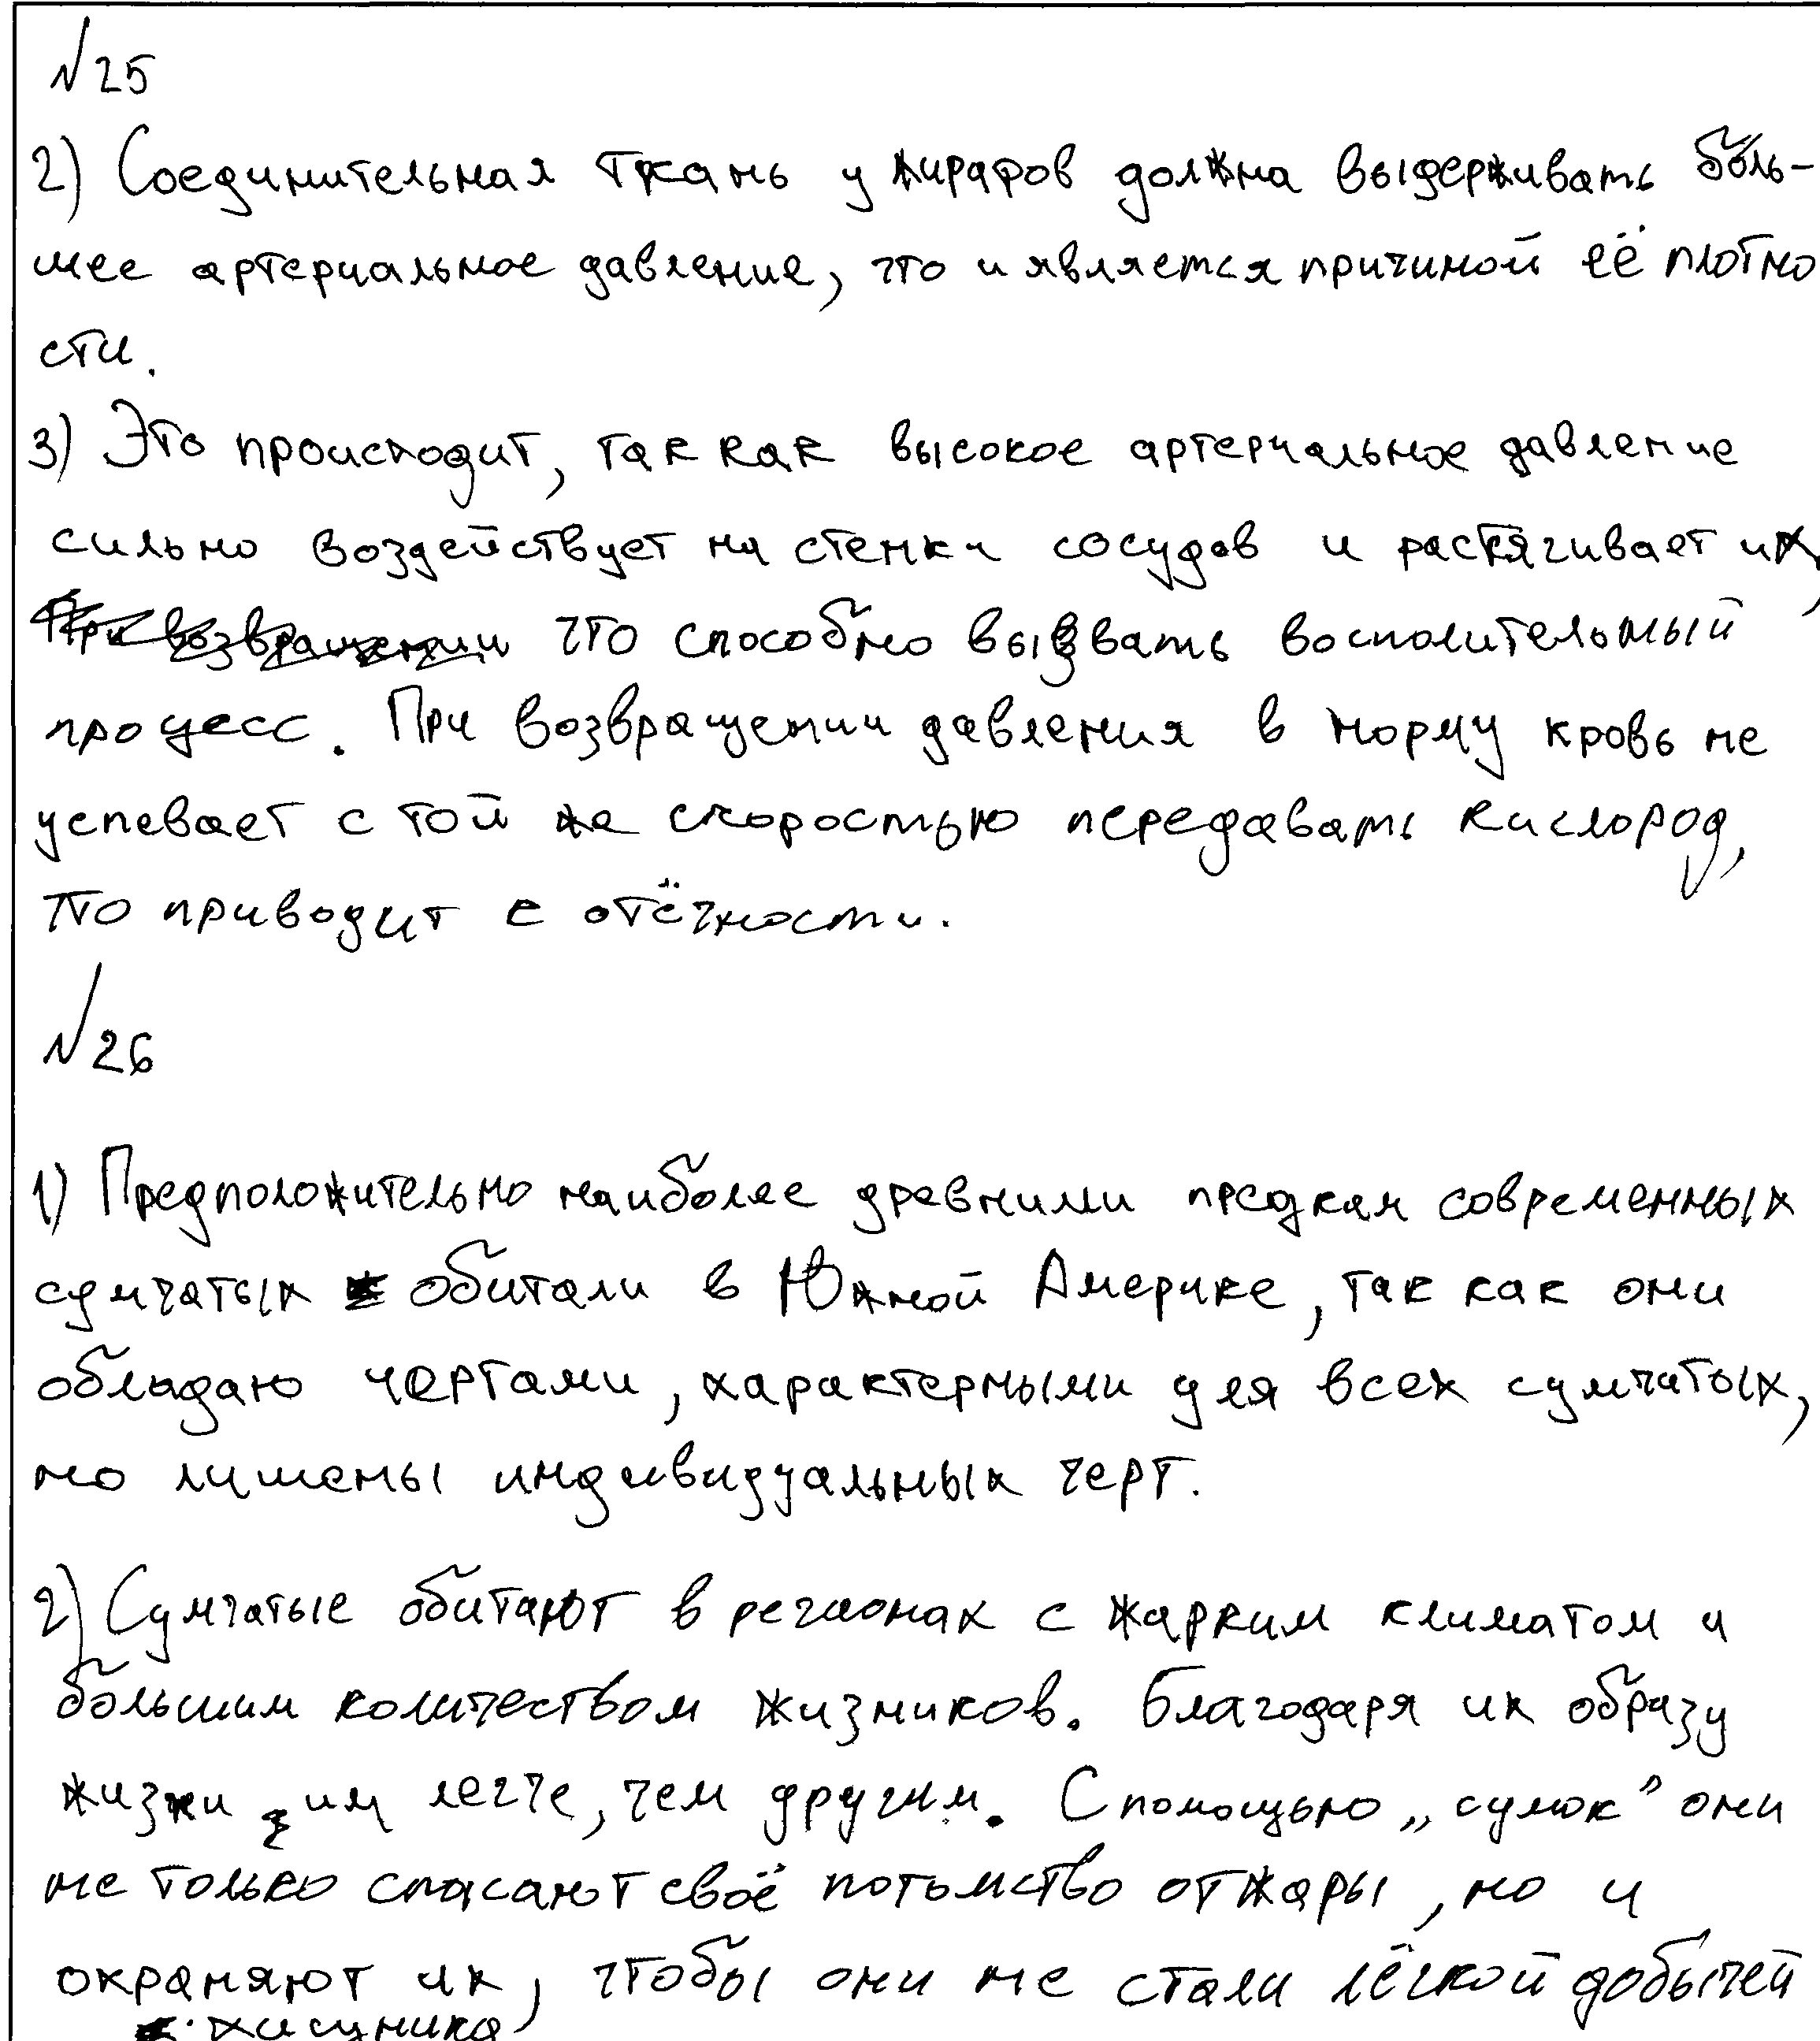 №25
2) Соединительная ткань у жирафов должна выдерживать боль-
шее артериальное давление, что и является причиной её плотно
сти.
3) Это происходит, так как высокое артериальное давление
сильно воздействует на стенки сосудов и растягивает их,
При возвращении что способно вызвать восполительный
процесс. При возвращении давления в норму кровь не
успевает с той же скоростью передавать кислород,
что приводит к отёчности.
№26
1) Предположительно наиболее древними предкам современных
сумчатых обитали в Южной Америке, так как они
обладаю чертами, характерными для всех сумчатых,
но лишены индивидуальных черт.
2) Сумчатые обитают в регионах с жарким климатом и
большим количеством хизников. Благодаря их образу
жизни им легче, чем другим. С помощью „сумок” они
не только спасают своё потомство от жары, но и
охраняют их, чтобы они не стали лёгкой добычей